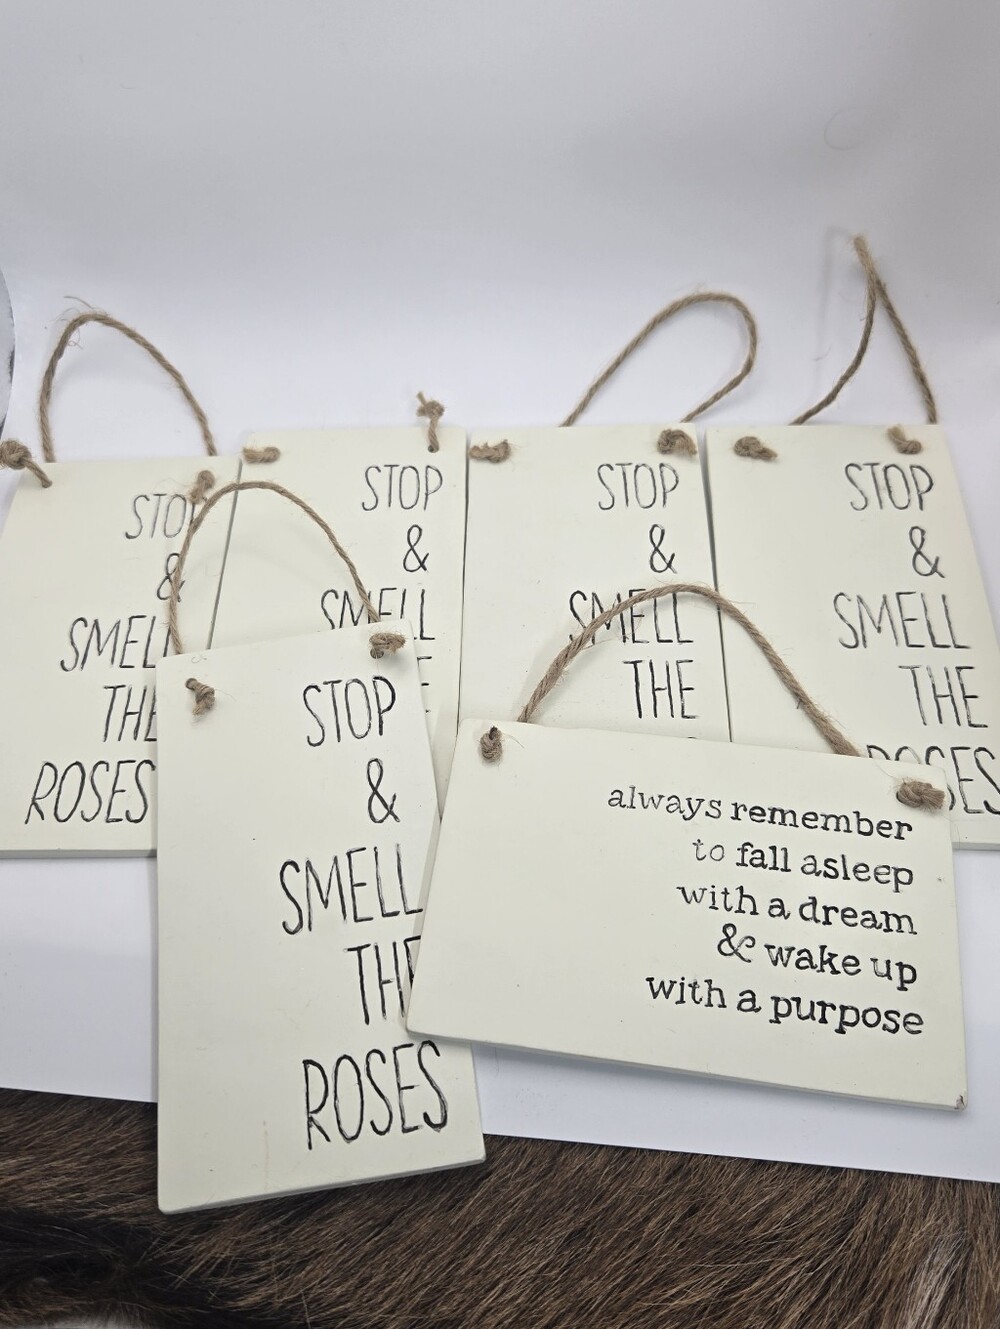 STOP
&
SMELL
THE
ROSES
STOP
&
SMELL
STOP
&
SMELL
THE
STOP
&
SMELL
THE
ROSES
STOP
&
SMELL
THE
ROSES
always remember
to fall asleep
with a dream
& wake up
with a purpose